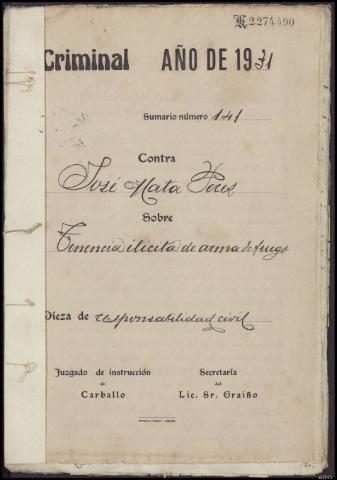 K.2274.490
Criminal AÑO DE 1931
Sumario número 141
Contra
José Mata Pérez
Sobre
Tenencia ilícita de arma de fuego
Pieza de responsabilidad civil
Juzgado de instrucción Secretaría
de del
Carballo Lic. Sr. Graiño